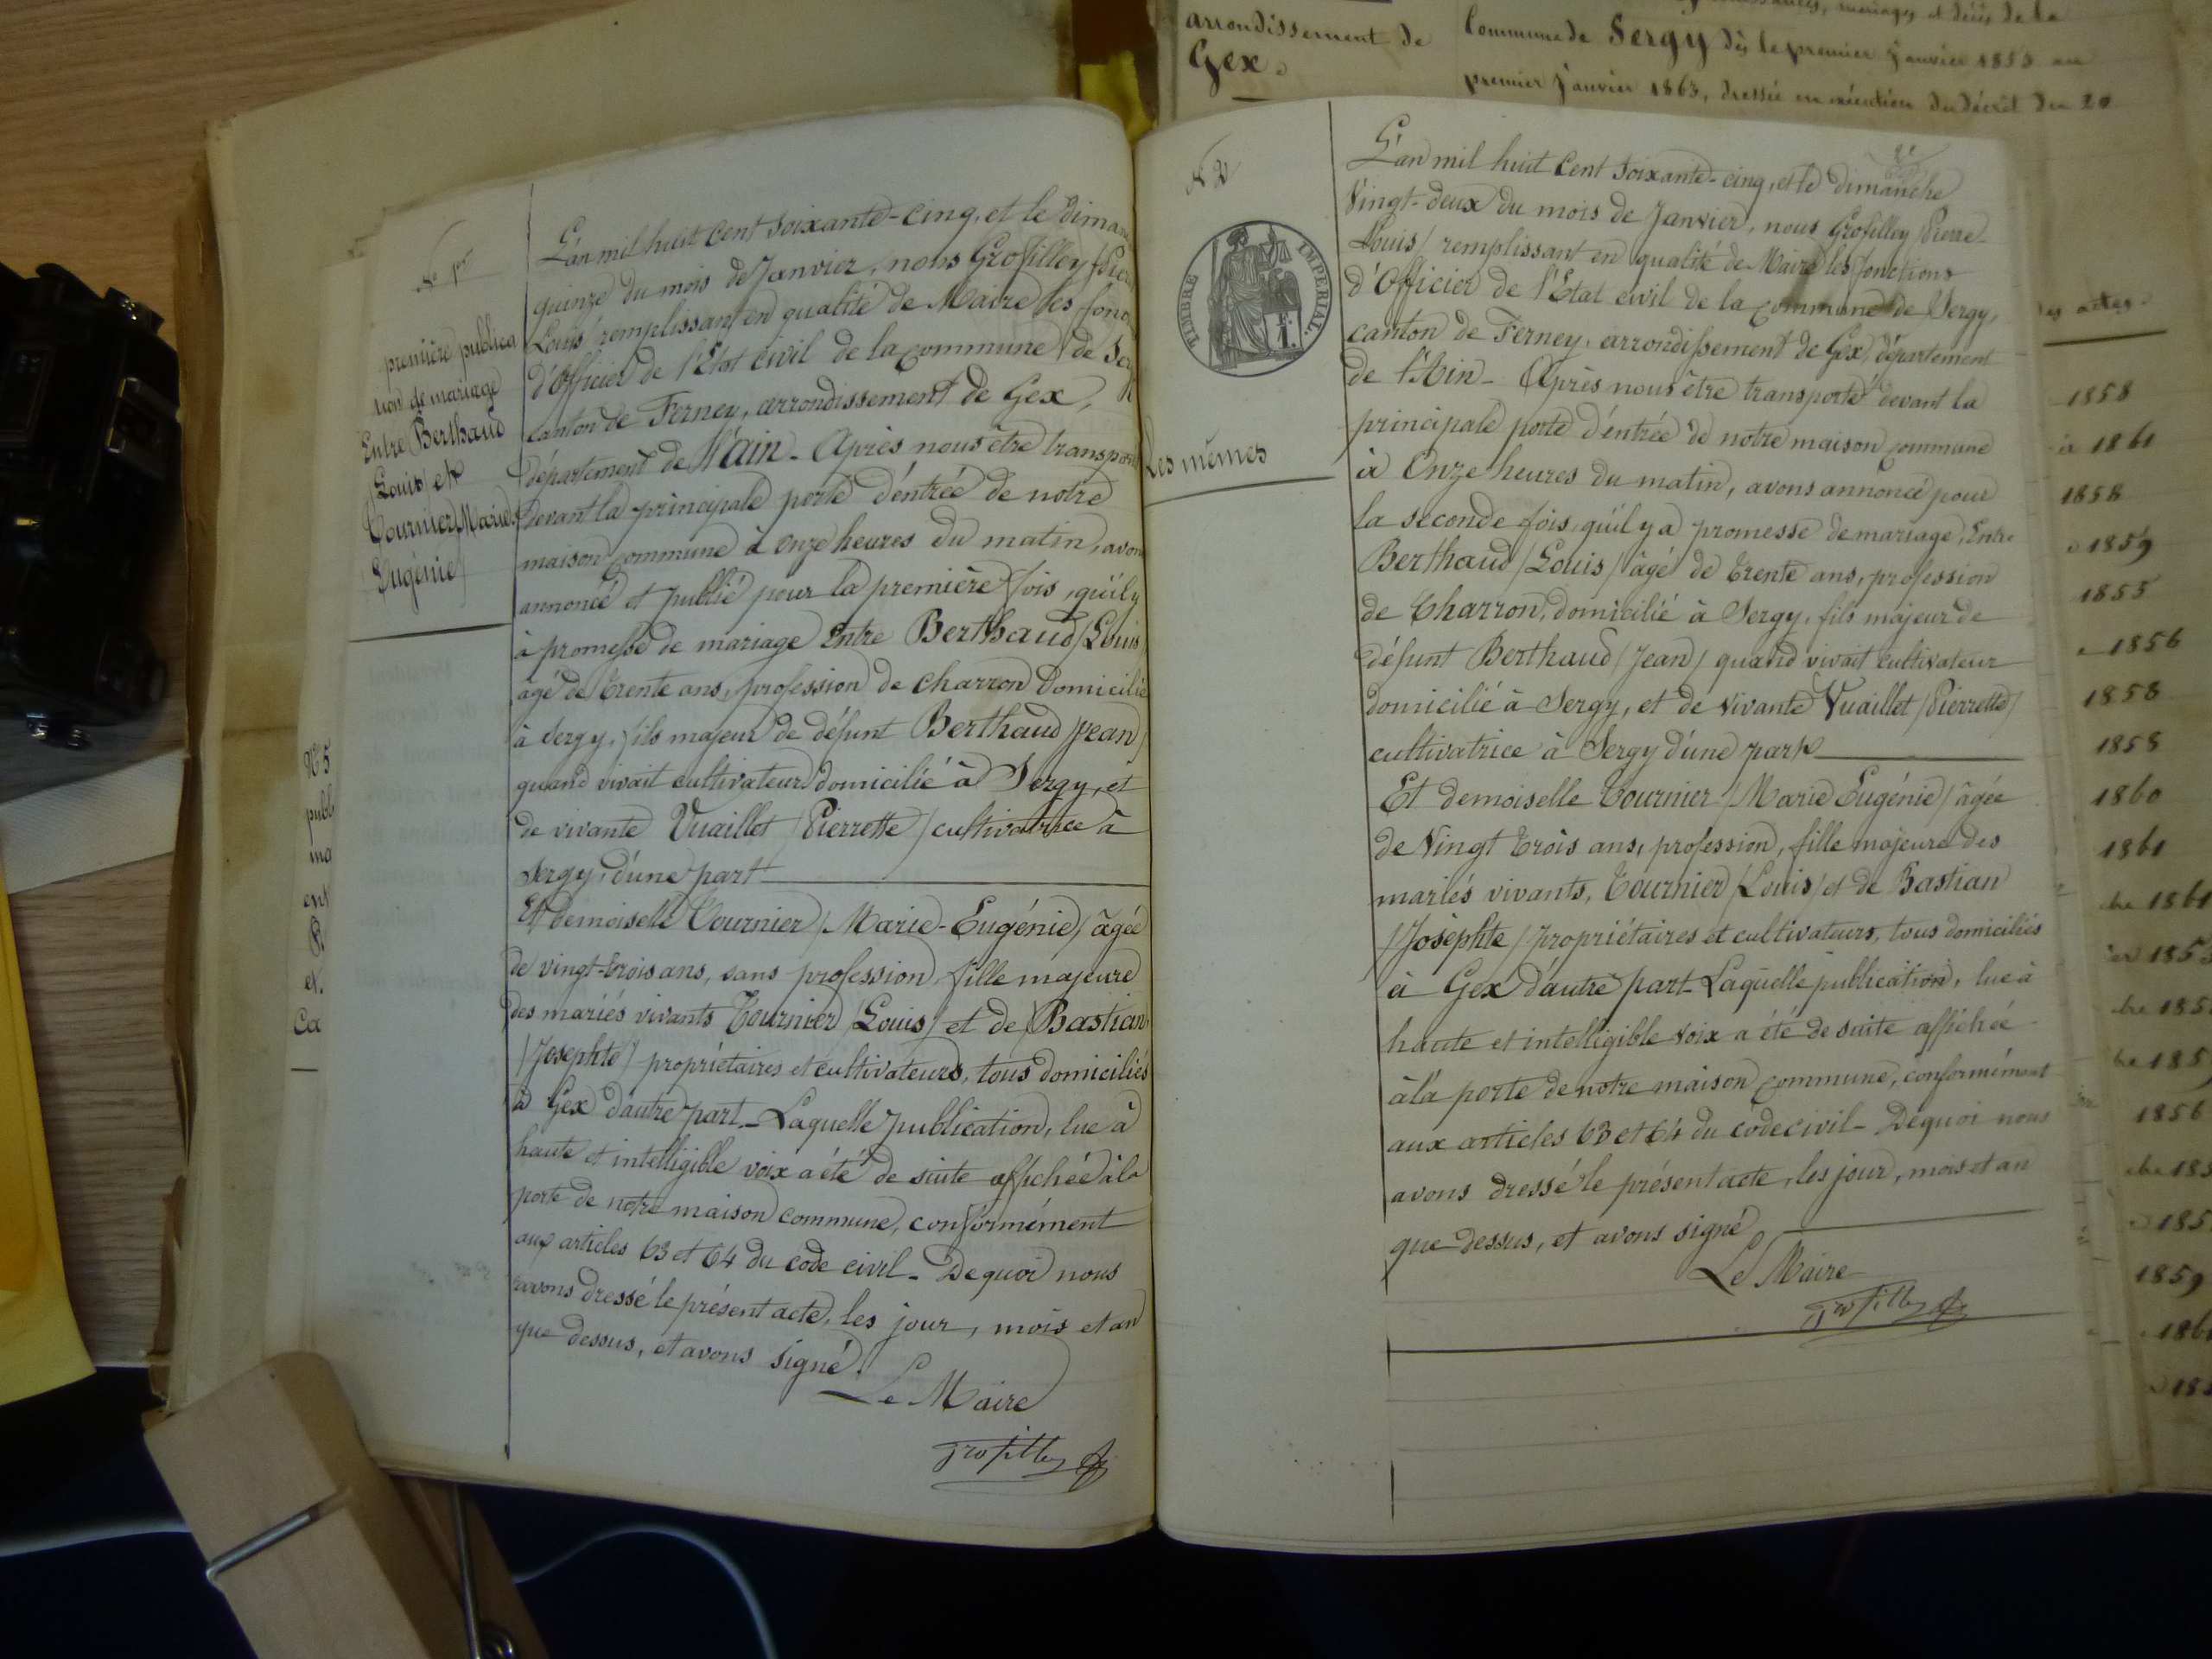 arrondissement de
Gex.
mariages et décès de la
Commune de Sergy dès le premier Janvier 1853 au
premier Janvier 1863, dressée en exécution du décret du 20
N° 1er
première publica
tion de mariage
Entre Berthaud
/Louis/ et
Tournier/Marie
Eugénie/
L'an mil huit cent soixante-cinq, et le diman
quinze du mois de Janvier, nous Grosfilley/Pier
Louis/ remplissant en qualité de Maire les fonc
d'Officier de l'État civil de la commune de Ser
canton de Ferney, arrondissement de Gex,
département de l'Ain - Après nous être transpor
devant la principale porte d'éntrée de notre
maison commune à onze heures du matin, avon
annoncé et publié pour la première fois, qu'il y
à promesse de mariage Entre Berthaud/Louis/
âgé de trente ans, profession de charron domicilié
à Sergy, fils majeur de défunt Berthaud/Jean/
quand vivait cultivateur domicilié à Sergy, et
de vivante Vuaillet/Pierrette/cultivatrice à
Sergy, d'une part
Et demoiselle Tournier/Marie-Eugénie/âgée
de vingt-trois ans, sans profession, fille majeure
des mariés vivants Tournier/Louis/et de Bastian
/Josephte/ propriétaires et cultivateurs, tous domiciliés
à Gex d'autre part - Laquelle publication, lue à
haute et intelligible voix a été de suite affichée à la
porte de notre maison commune, conformément
aux articles 63 et 64 du code civil - De quoi nous
avons dressé le présent acte, les jour, mois et an
que dessus, et avons signé.
Le Maire
Grosfilley
N° 5
publ
ma
ent
et
Ca
N° 2
TIMBRE IMPÉRIAL.
Les mêmes
L'an mil huit cent soixante-cinq, et le dimanche
Vingt-deux du mois de Janvier, nous Grosfilley/Pierre-
Louis/ remplissant en qualité de Maire les fonctions
d'Officier de l'État civil de la commune de Sergy,
canton de Ferney, arrondissement de Gex, département
de l'Ain - Après nous être transporté devant la
principale porte d'éntrée de notre maison commune
à Onze heures du matin, avons annoncé pour
la seconde fois, qu'il y a promesse de mariage, Entre
Berthaud/Louis/âgé de trente ans, profession
de Charron, domicilié à Sergy, fils majeur de
défunt Berthaud/Jean/ quand vivait cultivateur
domicilié à Sergy, et de vivante Vuaillet/Pierrette/
cultivatrice à Sergy d'une part
Et demoiselle Tournier/Marie Eugénie/âgée
de Vingt trois ans, profession, fille majeure des
mariés vivants, Tournier/Louis/et de Bastian
/Josephte/propriétaires et cultivateurs, tous domiciliés
à Gex d'autre part - Laquelle publication, lue à
haute et intelligible voix a été de suite affichée
à la porte de notre maison commune, conformément
aux articles 63 et 64 du code civil - De quoi nous
avons dressé le présent acte, les jour, mois et an
que dessus, et avons signé
Le Maire
Grosfilley
des actes.
1858
à 1861
1858
1859
1855
1856
1858
1858
1860
1861
bre 1861
1853
bre 185
bre 185
1856
bre 185
185
1859
186
185